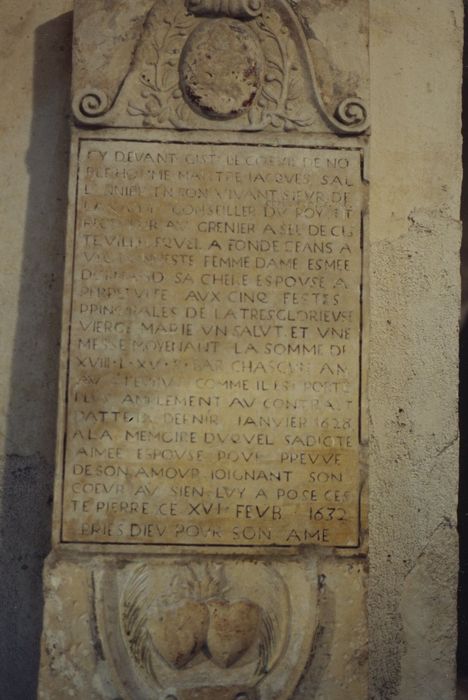 CY DEVANT GIST LE COEVR DE NO
BLE HOMME MAITRE IACQVES SAL
EN SON VIVANT SIEVR DE
CONSEILLER DV ROY ET
AV GRENIER A SEL DE CE
TE VILLE LEQVEL A FONDE CEANS A
VEC HONNESTE FEMME DAME ESMEE
SA CHERE ESPOVSE A
PERPETVITE AVX CINQ FESTES
PRINCIPALES DE LA TRES GLORIEVSE
VIERGE MARIE VN SALVT ET VNE
MESSE MOYENANT LA SOMME DE
XVIII L XV S PAR CHASCVN AN
COMME IL EST PORTE
PLVS AMPLEMENT AV CONTRAT
DATTE DV DERNIR IANVIER 1628
A LA MEMOIRE DVQVEL SADICTE
AIMEE ESPOVSE POVR PREVVE
DE SON AMOVR IOIGNANT SON
COEVR AV SIEN LVY A POSE CES
TE PIERRE CE XVI FEVB 1632
PRIES DIEV POVR SON AME